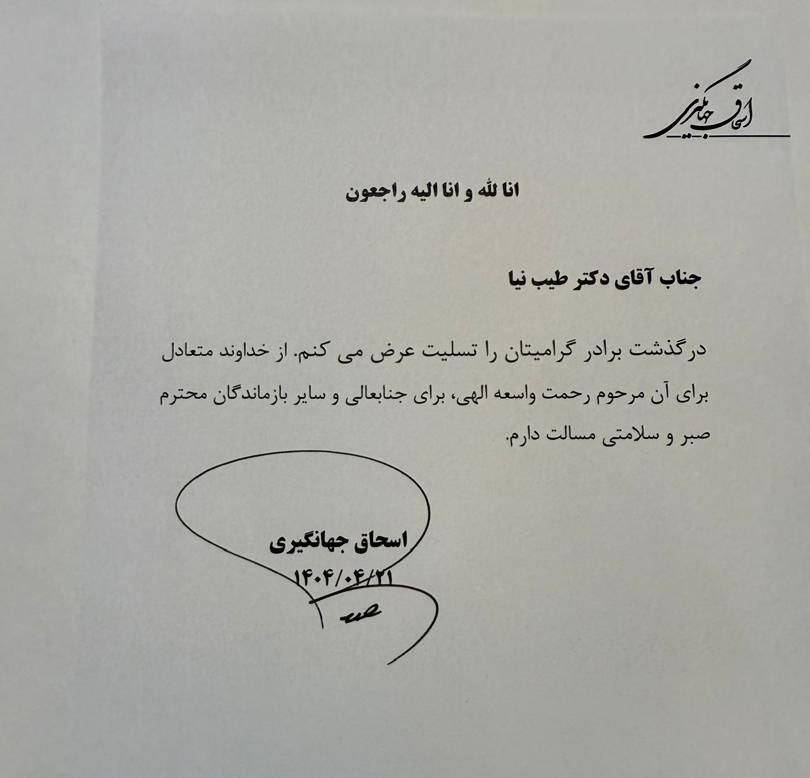 اسحاق جهانگیری
انا لله و انا الیه راجعون
جناب آقای دکتر طیب نیا
درگذشت برادر گرامیتان را تسلیت عرض می کنم. از خداوند متعادل
برای آن مرحوم رحمت واسعه الهی، برای جنابعالی و سایر بازماندگان محترم
صبر و سلامتی مسالت دارم.
اسحاق جهانگیری
۱۴۰۴/۰۴/۲۱